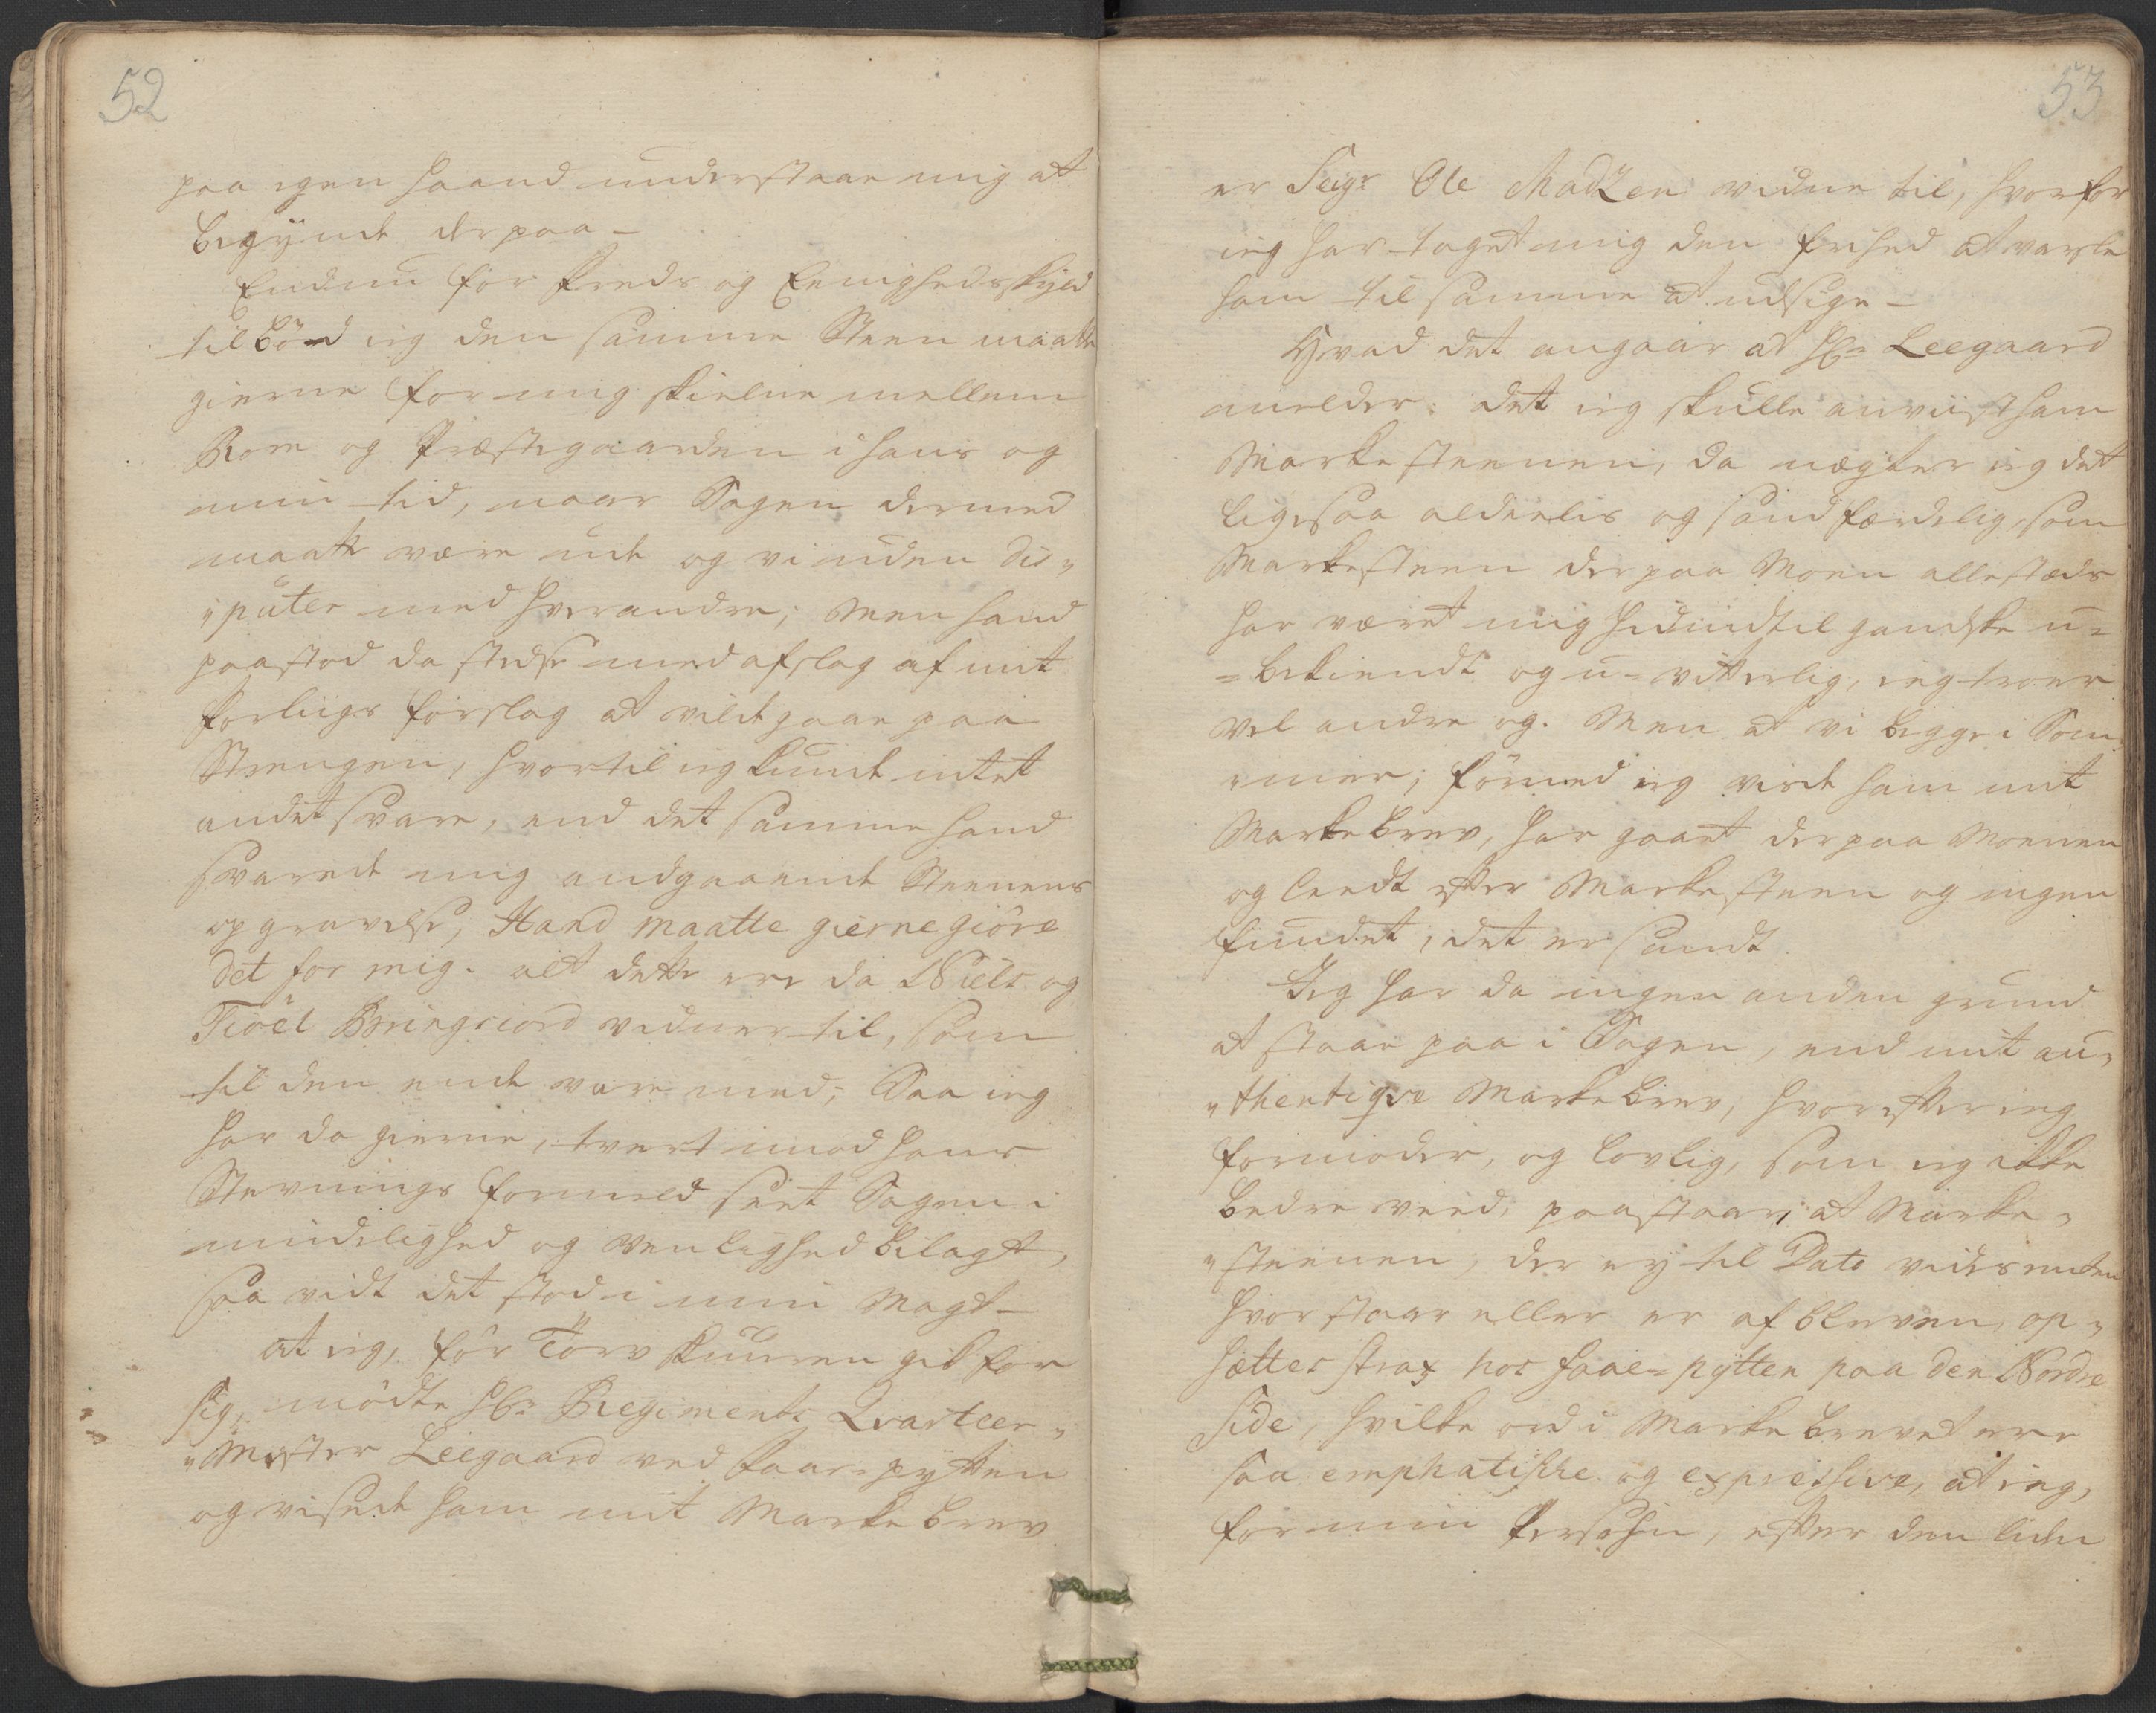 52
paa egen Haand understaae mig at
begynde derpaa –
Endnu for Freds og Eenigheds skyld
tilböd ieg den samme Steen maatte
gierne for mig skielne mellem
Rom og Præstegaarden i hans og
min tid, naar Sagen dermed
maatte være ude og vi uden dis„
„puter med hverandre; Men hand
paastod da stedse med afslag af mit
Forliigs forslag at vilde gaae paa
Strengen, hvortil ieg kunde intet
andet svare, end det samme hand
svarede mig andgaaende Steenens
opgravelse, Hand maatte gierne giöre
det for mig. alt dette ere da Niels og
Tiöel Bringsiord vidner til, som
til den ende vare med; Saa ieg
har da gierne, tvert imod hans
Stevnings formeld seet Sagen i
mindelighed og venlighed bilagt,
saa vidt det stod i min Magt –
at ieg, för Törvskuuren gik for
sig, mödte Hr Regiments Qvarteer„
„Mester Leegaard ved Faar-pytten
og visede ham mit Marke brev
53
er Seigr Ole Madzen vidne til, hvorfor
ieg har taget mig den frihed at varsle
ham til samme at udsige –
Hvad det angaar at Hr Leegaard
melder: det ieg skulle anviist ham
Markesteenen, da nægter ieg det
ligesaa alderlis og sandfærdelig, som
Markesteen der paa Moen allestæds
har været mig hidindtil gandske u=
=bekiendt og u-vitterlig, ieg troer
vel andre og. Men at vi begge i Som„
„mer, förend ieg viste ham mit
Markebrev, har gaaet der paa Moenen
og leedt efter Markesteen og ingen
fundet, det er sandt.
Jeg har da ingen anden grund
at staae paa i Sagen, end mit au„
„thentiqve Markebrev, hvorefter ieg
formoder, og lovlig, som ieg ikke
bedre veed, paastaar, at Marke„
„steenen, der ey til Dato vides enten
hvor staar eller er afbleven, op„
sættes strax hos Faae-pytten paa den Nordre
Side, hvilke ord i Markebrevet ere
saa emphatiske og expressive, at ieg,
for min Persohn, efter den liden